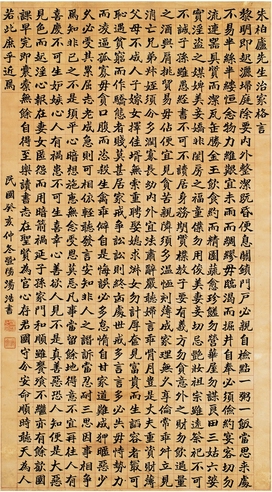 朱柏廬先生治家格言
黎明即起灑掃庭除要內外整潔既昏便息關鎖門戶必親自檢點一粥一飯當思來處
不易半絲半縷恒念物力維艱宜未雨而綢繆毋臨渴而掘井自奉必須儉約宴客切勿
流連器具質而潔瓦缶勝金玉飲食約而精園蔬愈珍饈勿營華屋勿謀良田三姑六婆
實淫盜之媒婢美妾嬌非閨房之福童僕勿用俊美妻妾切忌艷妝祖宗雖遠祭祀不可
不誠子孫雖愚經書不可不讀居身務期質樸教子要有義方勿貪意外之財勿飲過量
之酒與肩挑貿易毋佔便宜見貧苦親鄰須加溫恤刻薄成家理無久享倫常乖舛立見
消亡兄弟叔姪須分多潤寡長幼內外宜法肅辭嚴聽婦言乖骨肉豈是丈夫重資財薄
父母不成人子嫁女擇佳婿毋索重聘娶媳求淑女勿計厚奩見富貴而生諂容者最可
恥遇貧窮而作驕態者賤莫甚居家戒爭訟訟則終凶處世戒多言言多必失毋恃勢力
而凌逼孤寡毋貪口腹而恣殺生禽乖僻自是悔誤必多頹惰自甘家道難成狎暱惡少
久必受其累屈志老成急則可相依輕聽發言安知非人之譖訴當忍耐三思因事相爭
焉知非我之不是須平心暗想施惠無念受恩莫忘凡事當留餘地得意不宜再往人有
喜慶不可生妒嫉心人有禍患不可生喜幸心善欲人見不是真善惡恐人知便是大惡
見色而起淫心報在妻女匿怨而用暗箭禍延子孫家門和順雖饔飧不繼亦有餘歡國
課早完即囊橐無餘自得至樂讀書志在聖賢為官心存君國守分安命順時聽天為人
若此庶乎近焉
民國癸亥仲冬書